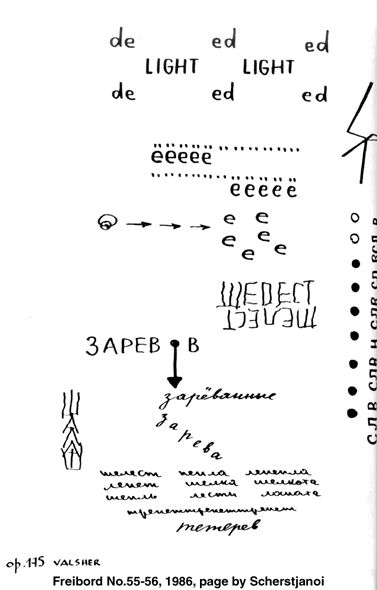 de ed ed
LIGHT LIGHT
de ed ed
ёёёёё
ёёёёё
e e
e e
e e
ЩЕПЕСТ
ЗАРЕВ В
зарёванные
зарева
шелест пепла лепепла
лепет шелка шелкота
шепль лести лопата
трепеттрепеттрепет
тетерев
ор. 175 VALSHER
Freibord No.55-56, 1986, page by Scherstjanoi